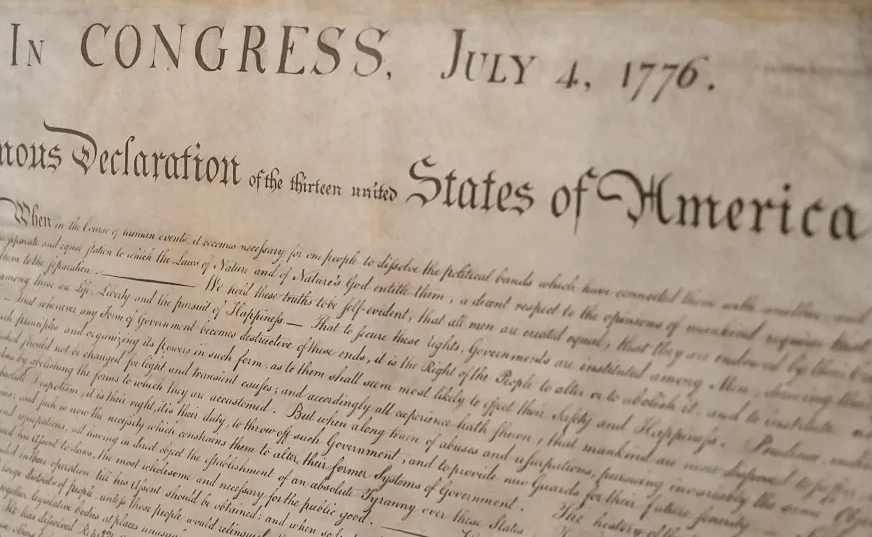 In CONGRESS, July 4, 1776.
nous Declaration of the thirteen united States of America
When in the Course of human events, it becomes necessary for one people to dissolve the political bands which have connected them with another, and
separate and equal station to which the Laws of Nature and of Nature's God entitle them, a decent respect to the opinions of mankind requires that
them to the separation. We hold these truths to be self-evident, that all men are created equal, that they are endowed by their
among these are Life, Liberty and the pursuit of Happiness.— That to secure these rights, Governments are instituted among Men, deriving their
— That whenever any Form of Government becomes destructive of these ends, it is the Right of the People to alter or to abolish it, and to institute
principles and organizing its powers in such form, as to them shall seem most likely to effect their Safety and Happiness. Prudence,
should not be changed for light and transient causes; and accordingly all experience hath shewn, that mankind are more disposed to
by abolishing the forms to which they are accustomed. But when a long train of abuses and usurpations, pursuing invariably the same
Despotism, it is their right, it is their duty, to throw off such Government, and to provide new Guards for their future security
and such is now the necessity which constrains them to alter their former Systems of Government. The history of the
and usurpations, all having in direct object the establishment of an absolute Tyranny over these States.
his Assent to Laws, the most wholesome and necessary for the public good.
in their operation till his Assent should be obtained; and when
large districts of people, unless those people would relinquish
together legislative bodies at places unusual
He has dissolved